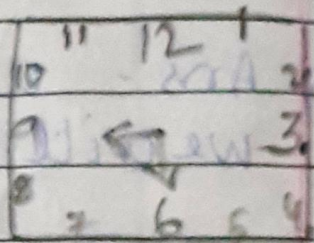 11 12 1
10 2
9 3
8 4
7 6 5